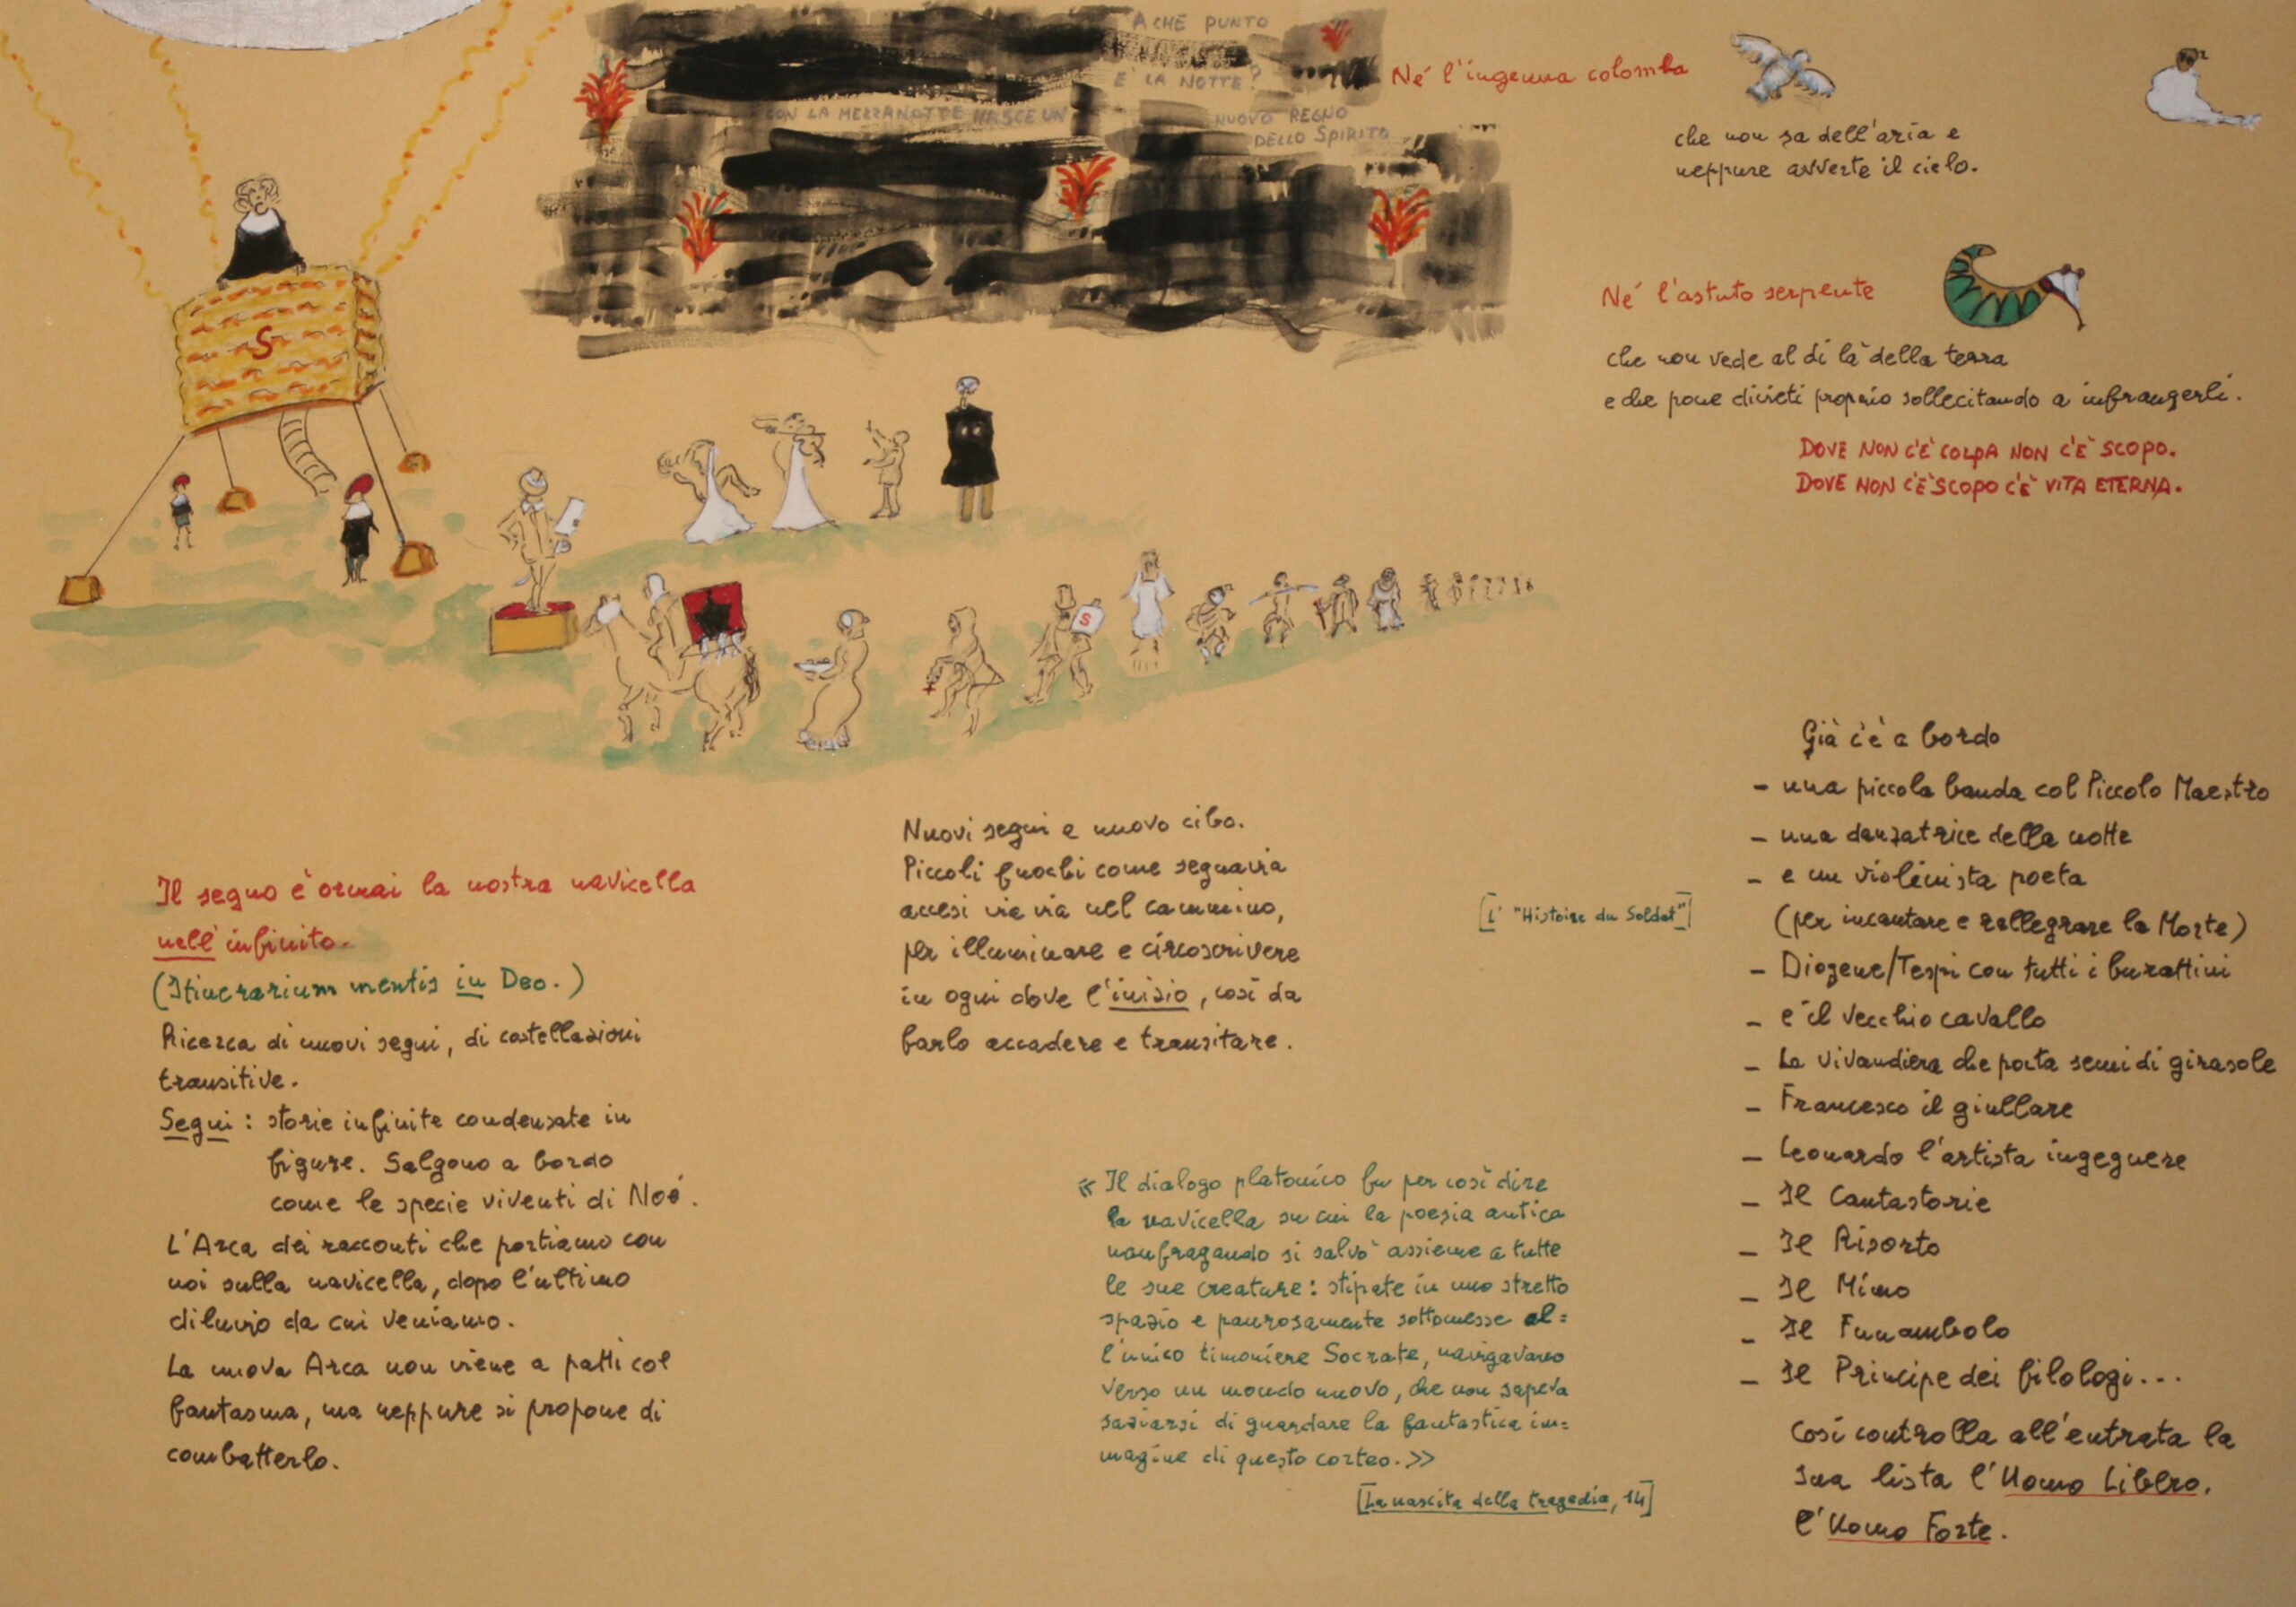 A CHE PUNTO
E' LA NOTTE?
CON LA MEZZANOTTE NASCE UN
NUOVO REGNO
DELLO SPIRITO
Né l'ingenua colomba
che non sa dell'aria e
neppure avverte il cielo.
Né l'astuto serpente
che non vede al di là della terra
e che pone divieti proprio sollecitando a infrangerli.
DOVE NON C'È COLPA NON C'È SCOPO.
DOVE NON C'È SCOPO C'È VITA ETERNA.
S
S
Il segno è ormai la nostra navicella
nell'infinito.
(Itinerarium mentis in Deo.)
Ricerca di nuovi segni, di costellazioni
transitive.
Segni: storie infinite condensate in
figure. Salgono a bordo
come le specie viventi di Noè.
L'Arca dei racconti che portiamo con
noi sulla navicella, dopo l'ultimo
diluvio da cui veniamo.
La nuova Arca non viene a patti col
fantasma, ma neppure si propone di
combatterlo.
Nuovi segni e nuovo cibo.
Piccoli fuochi come segnavia
accesi via via nel cammino,
per illuminare e circoscrivere
in ogni dove l'inizio, così da
farlo accadere e transitare.
[L' "Histoire du Soldat"]
« Il dialogo platonico fu per così dire
la navicella su cui la poesia antica
naufragando si salvò assieme a tutte
le sue creature: stipate in uno stretto
spazio e paurosamente sottomesse al=
l'unico timoniere Socrate, navigavano
verso un mondo nuovo, che non sapeva
saziarsi di guardare la fantastica im=
magine di questo corteo. »
[La nascita della tragedia, 14]
Già c'è a bordo
- una piccola banda col Piccolo Maestro
- una danzatrice della notte
- e un violinista poeta
(per incantare e rallegrare la Morte)
- Diogene/Tespi con tutti i burattini
- e il vecchio cavallo
- La vivandiera che porta semi di girasole
- Francesco il giullare
- Leonardo l'artista ingegnere
- Il Cantastorie
- Il Risorto
- Il Mimo
- Il Funambolo
- Il Principe dei filologi...
Così controlla all'entrata la
sua lista l'Uomo Libero,
l'Uomo Forte.